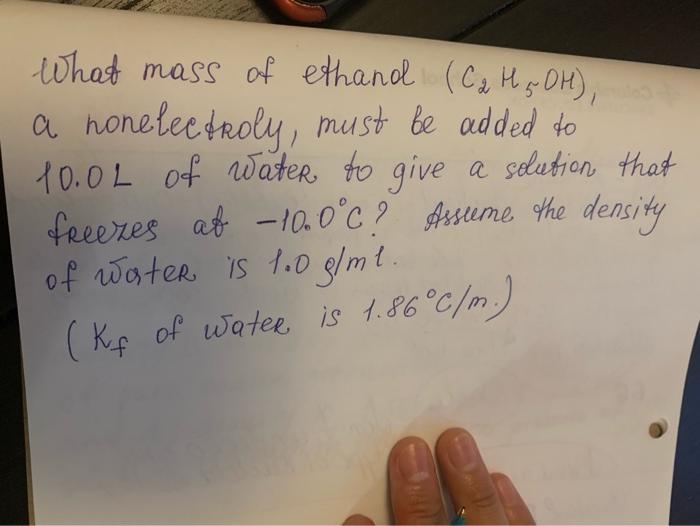 What mass of ethanol (C₂H₅OH),
a nonelectroly, must be added to
10.0L of water to give a solution that
freezes at -10.0°C? Assume the density
of water is 1.0 g/ml.
(Kf of water is 1.86°C/m.)